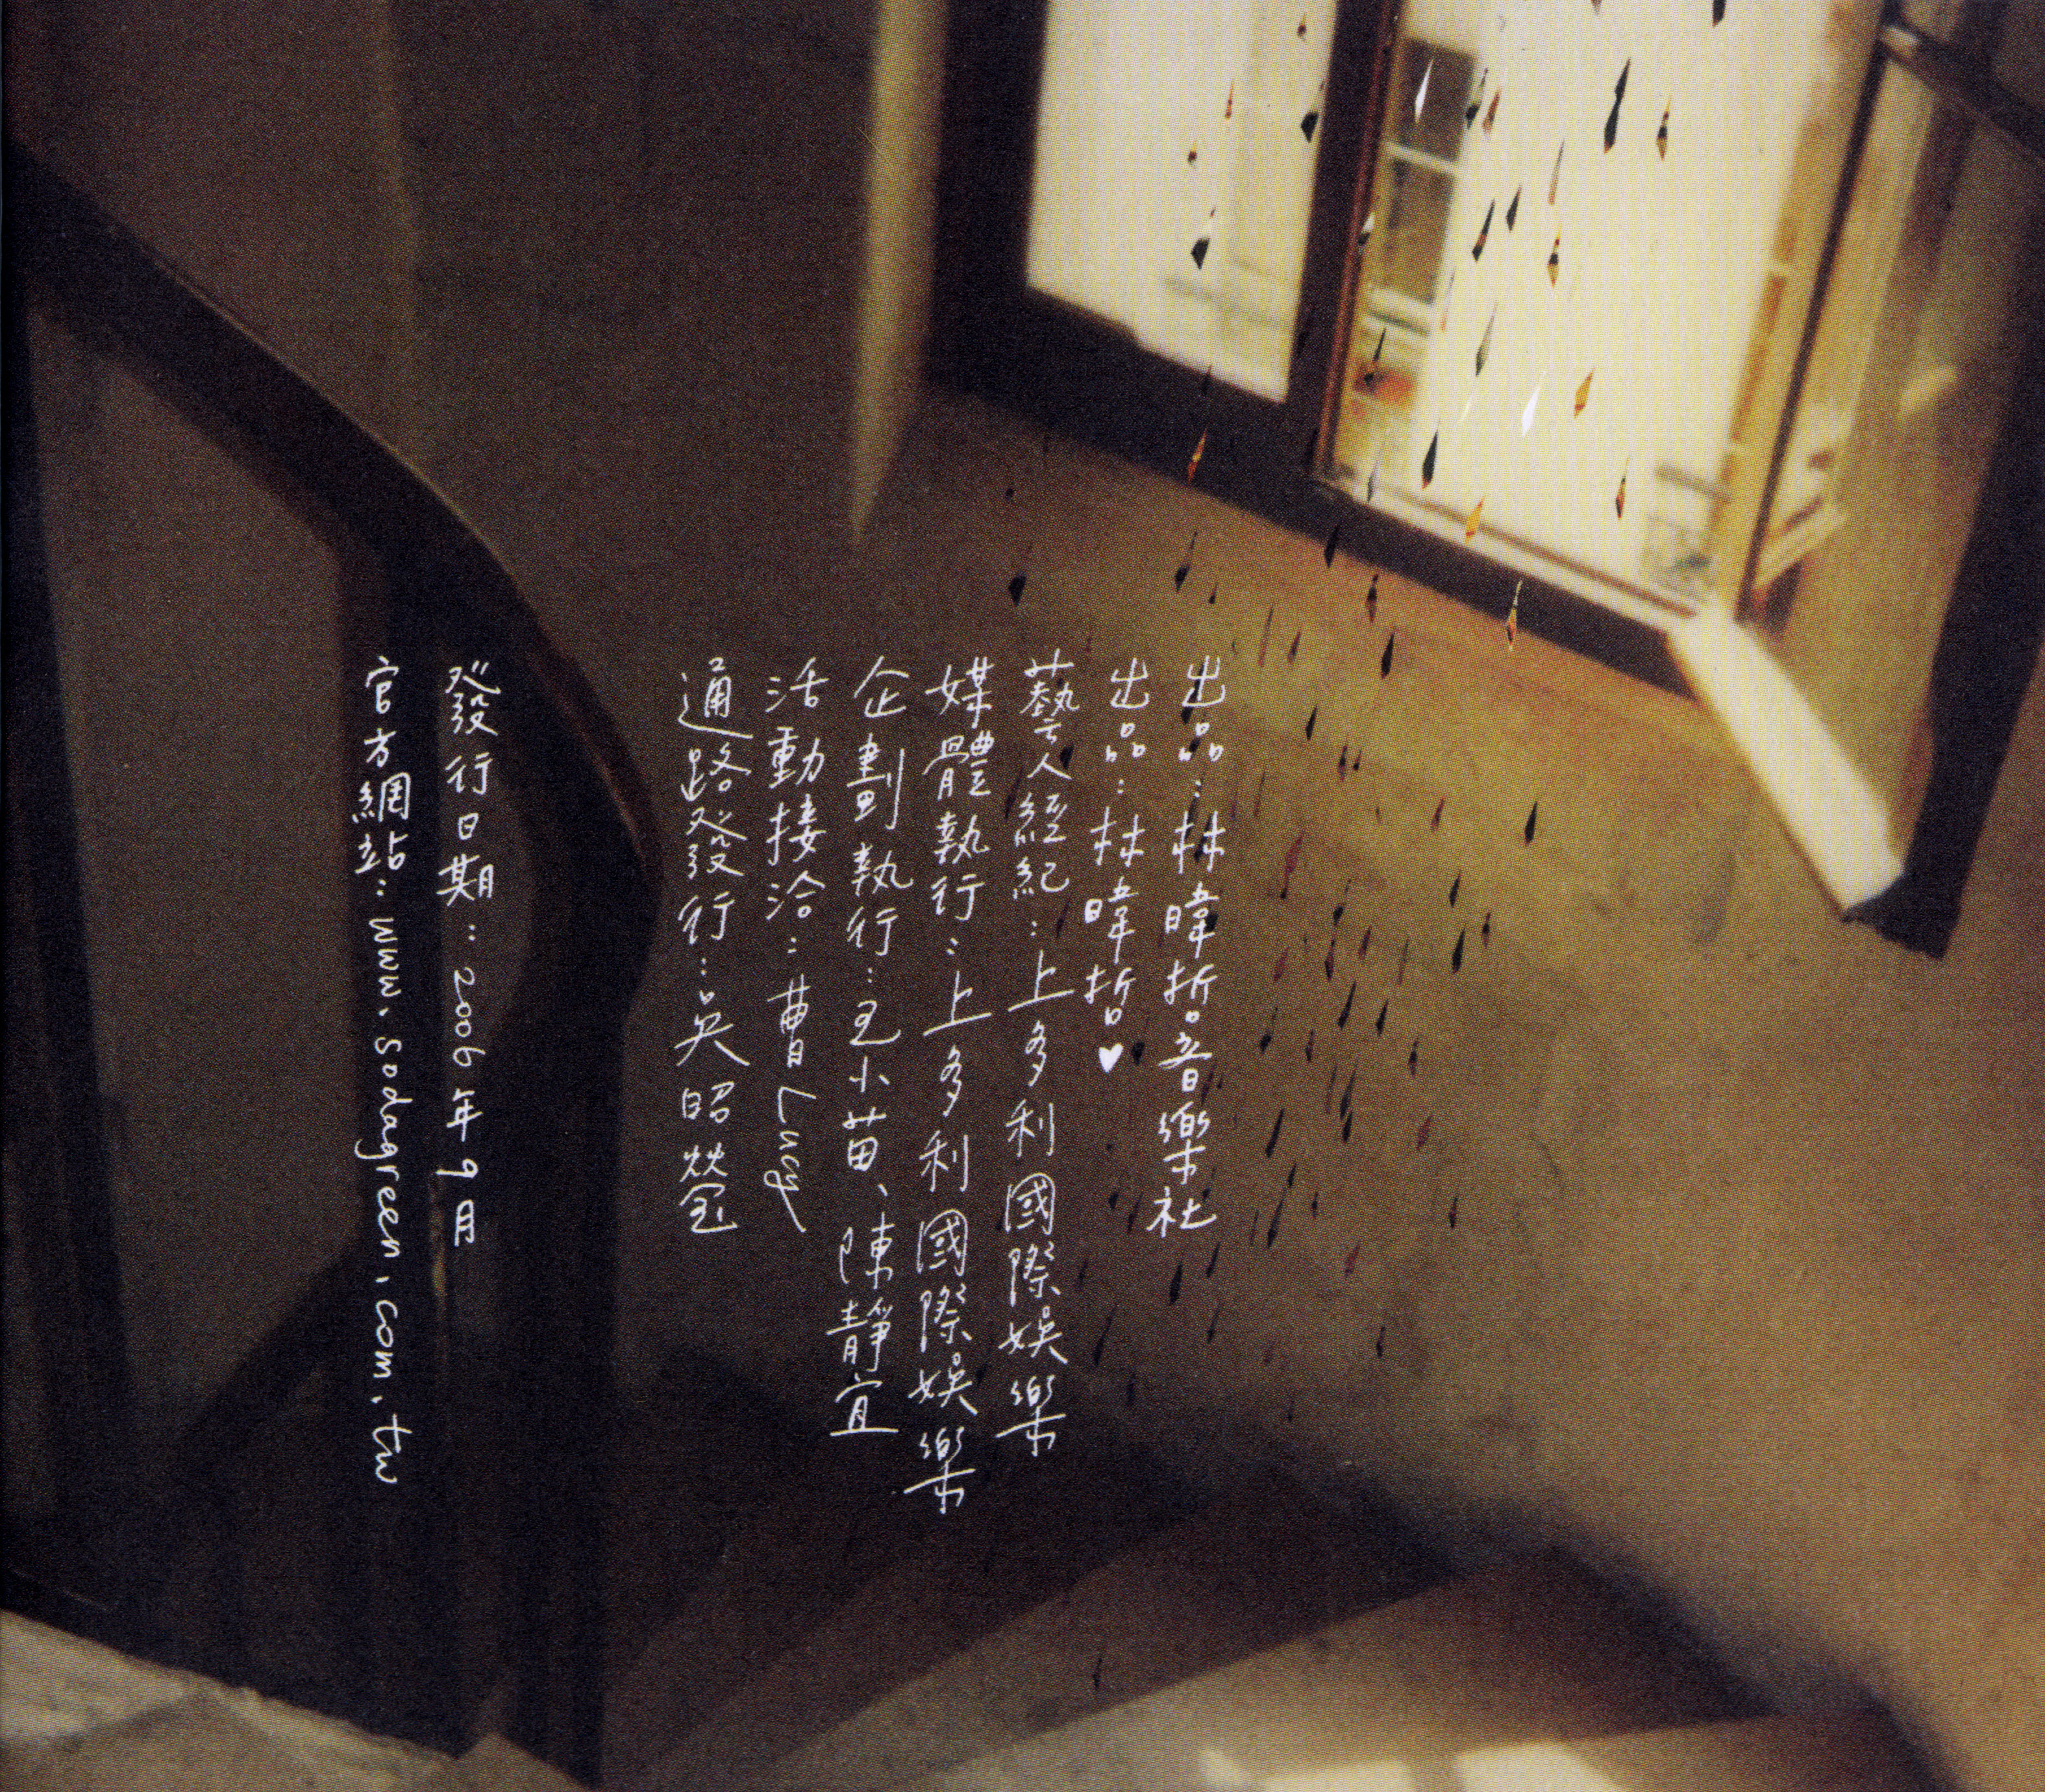 出品：林暐哲音樂社
出品：林暐哲♥
藝人經紀：上多利國際娛樂
媒體執行：上多利國際娛樂
企劃執行：毛小苗、陳靜宜
活動接洽：曹Lucy
通路發行：吳昭瑩
發行日期：2006年9月
官方網站：www.sodagreen.com.tw